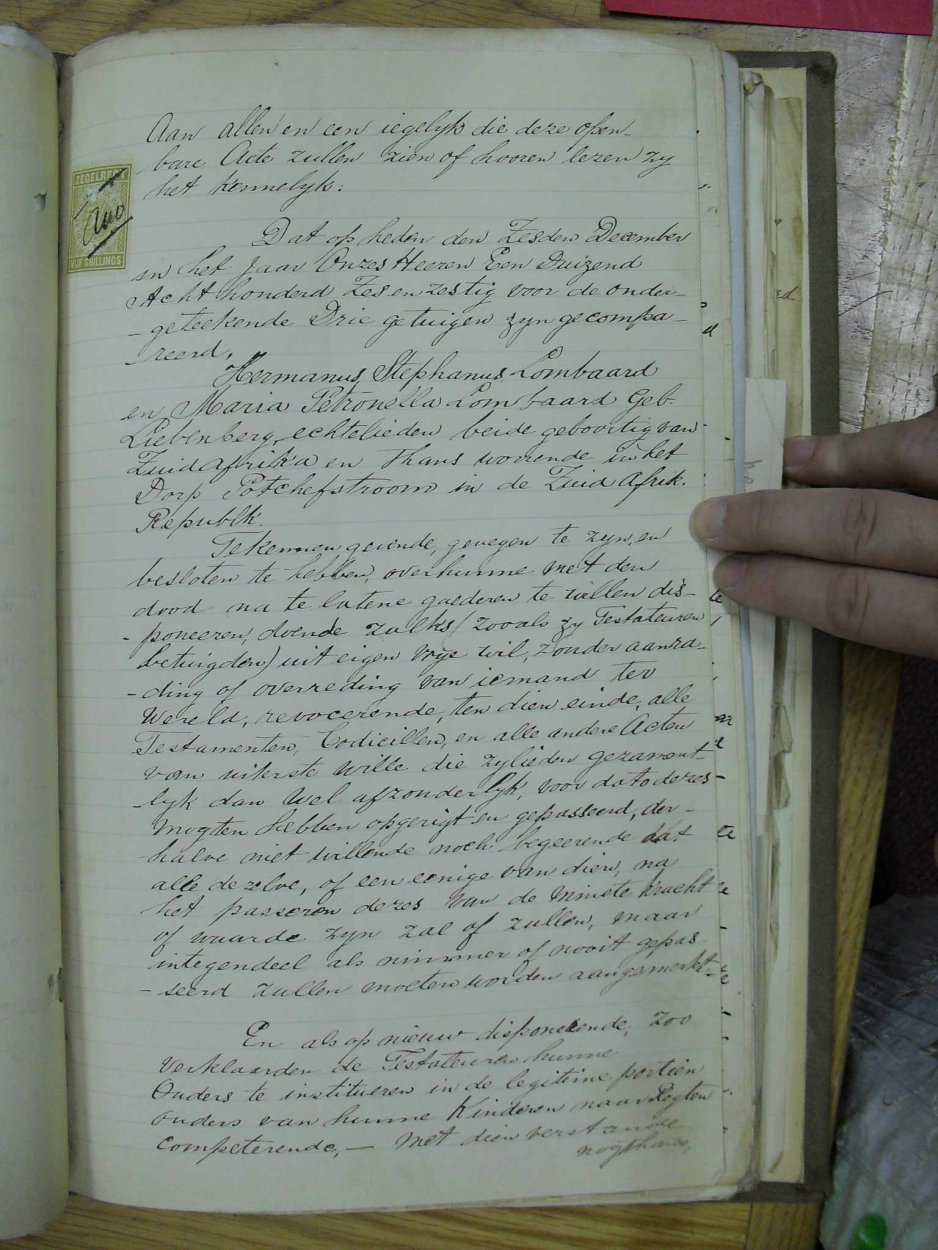 Aan allen en een iegelyk die deze open-
bare Acte zullen zien of hooren lezen zy
het kennelyk:
ZEGELRE
VIJF SHILLINGS
Dat op heden den Zesden December
in het jaar Onzes Heeren Een Duizend
Acht honderd Zes en zestig voor de onder-
- geteekende Drie getuigen zyn gecompa-
- reerd,
Hermanus Stephanus Lombaard
en Maria Petronella Lombaard Geb.
Liebenberg, echtelieden beide geboortig van
Zuid Afrika en thans woonende in het
Dorp Potchefstroom in de Zuid Afrik.
Republk.
Te kennen gevende, genegen te zyn, en
besloten te hebben, over hunne met den
dood na te latene goederen te willen dis-
- poneeren, doende zulks (zooals zy Testateuren
betuigden) uit eigen vrye wil, zonder aanra-
- ding of overreding van iemand ter
Wereld, revocerende, ten dien einde, alle
Testamenten, Codicillen, en alle andere Acten
van uiterste wille die zylieden gezament-
lyk dan wel afzonderlyk, voor dato dezes
mogten hebben opgerigt en gepasseerd, der-
- halve niet willende noch begeerende dat
alle dezelve, of een eenige van dien, na
het passeren dezes van de minste kracht
of waarde zyn zal of zullen, maar
integendeel als nimmer of nooit gepas-
- seerd zullen moeten worden aangemerkt.
En als op nieuw disponeerende, zoo
verklaarden de Testateuren hunne
Ouders te institueren in de legitime portien
ouders van hunne Kinderen naar Regten
competerende, — Met dien verstande
nogthans,